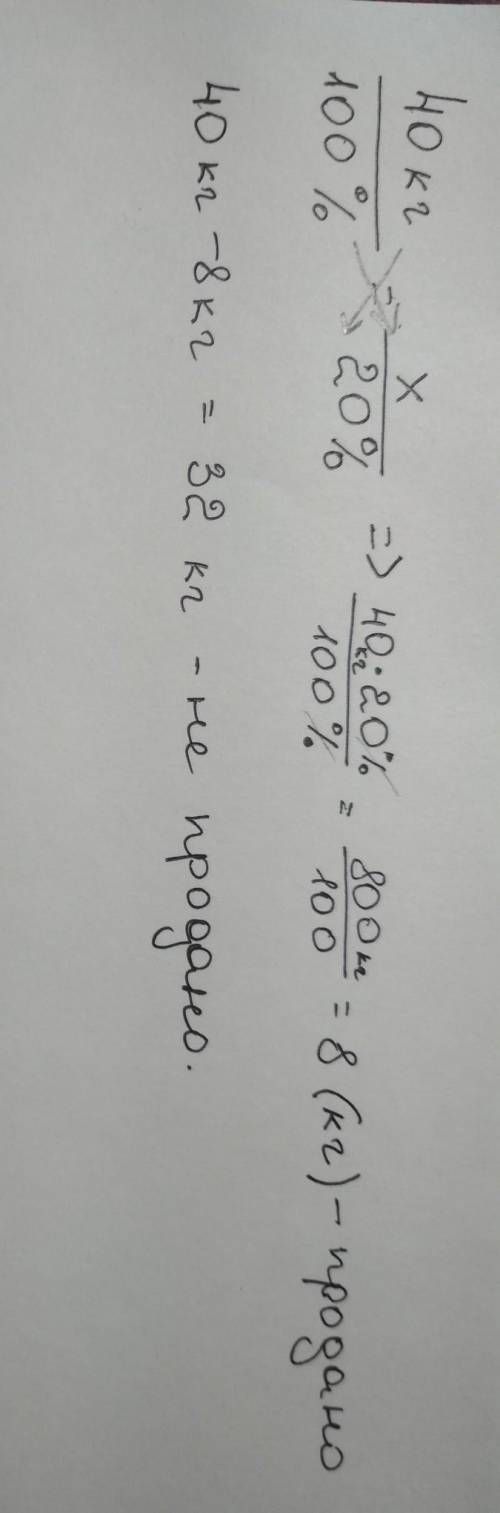 40 кг / 100% = x / 20% => 40 кг · 20% / 100% = 800 кг / 100 = 8 (кг) – продано
40 кг – 8 кг = 32 кг – не продано.